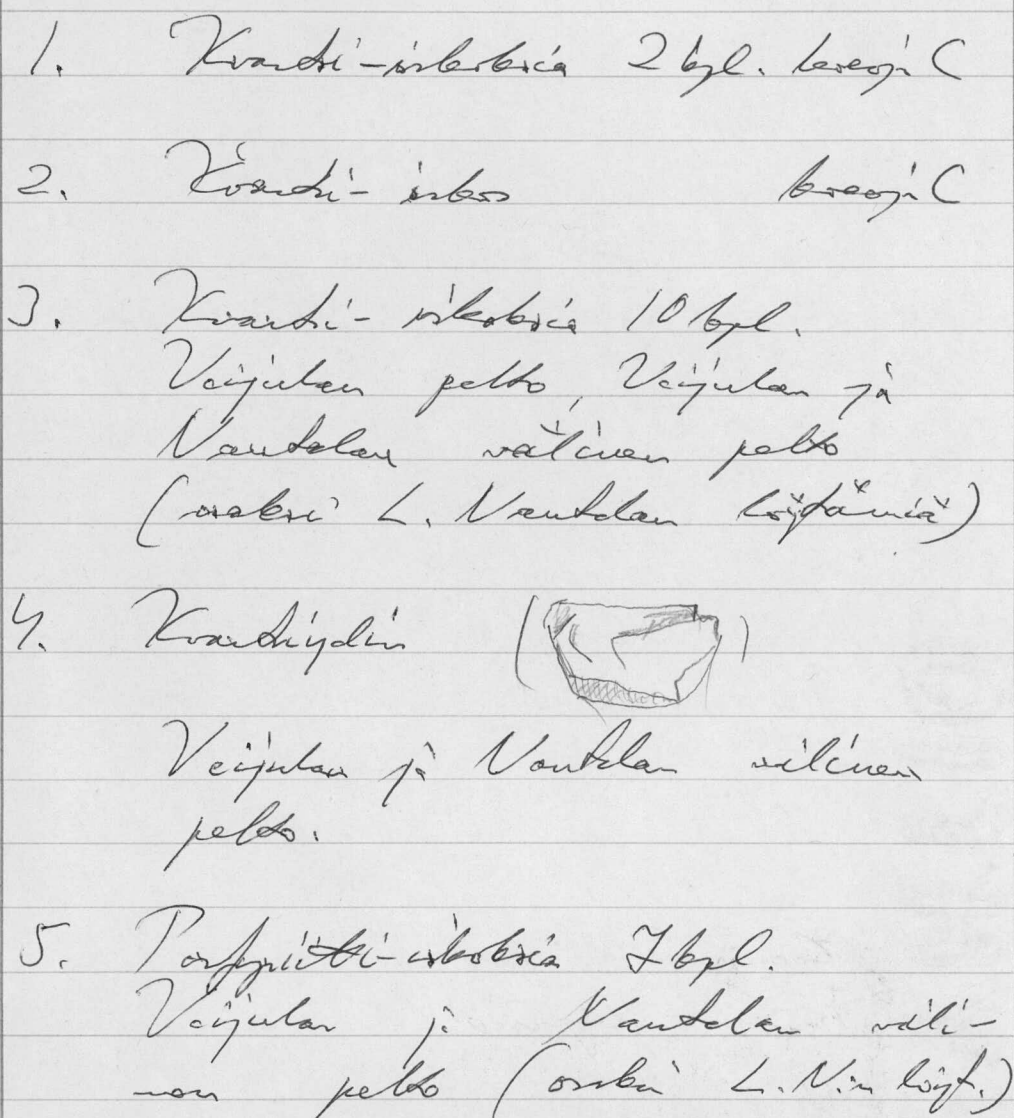 1. Kvartsi-iskoksia 2 kpl. keräys C
2. Kvartsi-iskos keräys C
3. Kvartsi-iskoksia 10 kpl.
Veijulan pelto, Veijulan ja
Nautelan välinen pelto
(osaksi L. Nautelan löytämiä)
4. Kvartsiydin ( )
Veijulan ja Nautelan välinen
pelto.
5. Porfyriitti-iskoksia 7 kpl.
Veijulan ja Nautelan väli-
nen pelto (osaksi L.N:n löyt.)